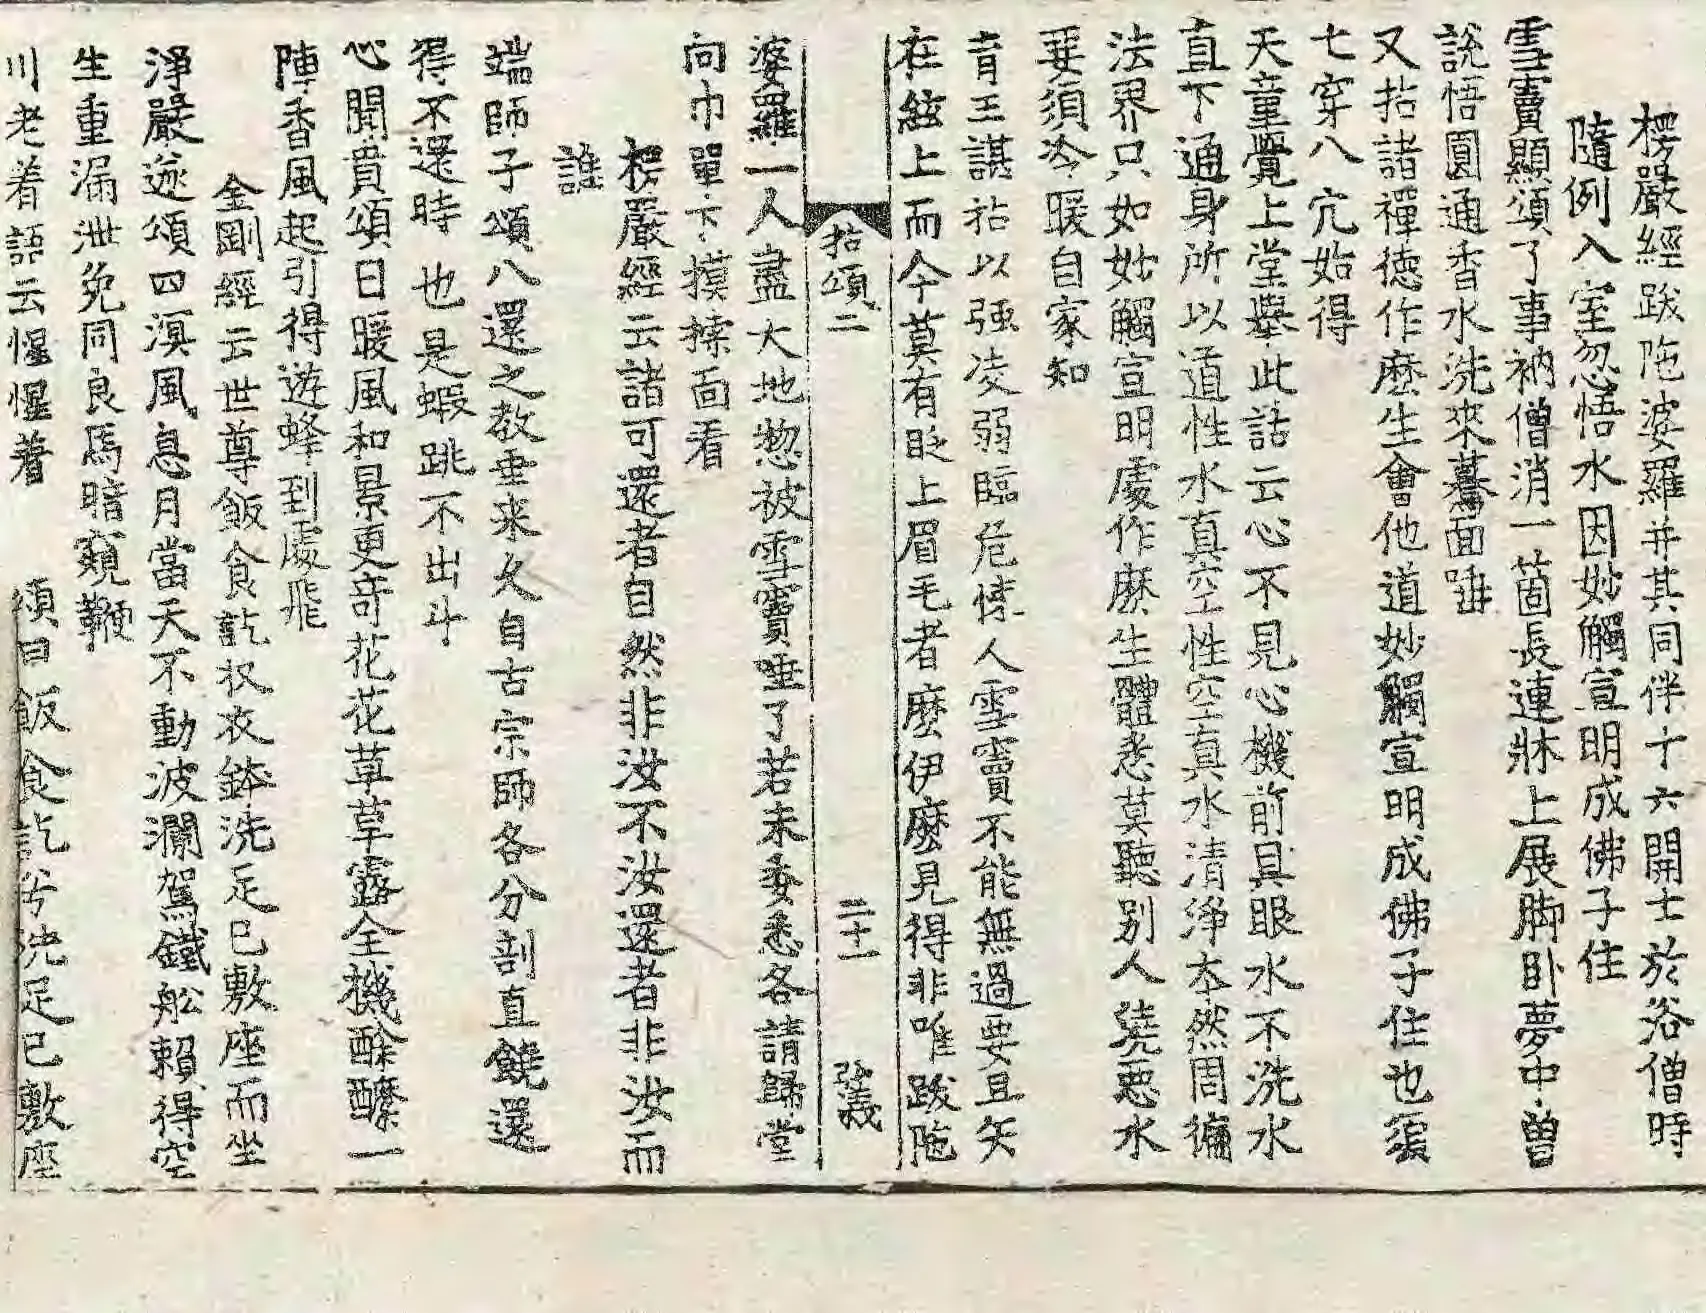 楞嚴經跋陁婆羅并其同伴十六開士於浴僧時
隨例入室忽悟水因妙觸宣明成佛子住
雪竇顯頌了事衲僧消一箇長連牀上展脚卧夢中曾
說悟圓通香水洗來驀面唾
又拈諸禪德作麽生會他道妙觸宣明成佛子住也須
七穿八穴始得
天童覺上堂擧此話云心不見心機前具眼水不洗水
直下通身所以道性水真空性空真水清淨本然周徧
法界只如妙觸宣明處作麽生體悉莫聽別人澆惡水
要須冷暖自家知
育王諶拈以强凌弱臨危悚人雪竇不能無過要且矢
在絃上而今莫有眨上眉毛者麽伊麽見得非唯跋陁
拈頌二 二十一 弘義
婆羅一人盡大地惣被雪竇唾了若未委悉各請歸堂
向巾單下摸𢱢面看
楞嚴經云諸可還者自然非汝不汝還者非汝而
誰
端師子頌八還之教垂来久自古宗師各分剖直饒還
得不還時 也是蝦跳不出斗
心聞賁頌日暖風和景更竒花花草草露全機酴醾一
陣香風起引得遊蜂到處飛
金剛經云世尊飯食訖收衣鉢洗足已敷座而坐
淨嚴遂頌四溟風息月當天不動波瀾駕鐵舩賴得空
生重漏泄免同良馬暗窺鞭
川老着語云惺惺着 頌曰飯食訖兮洗足已敷座